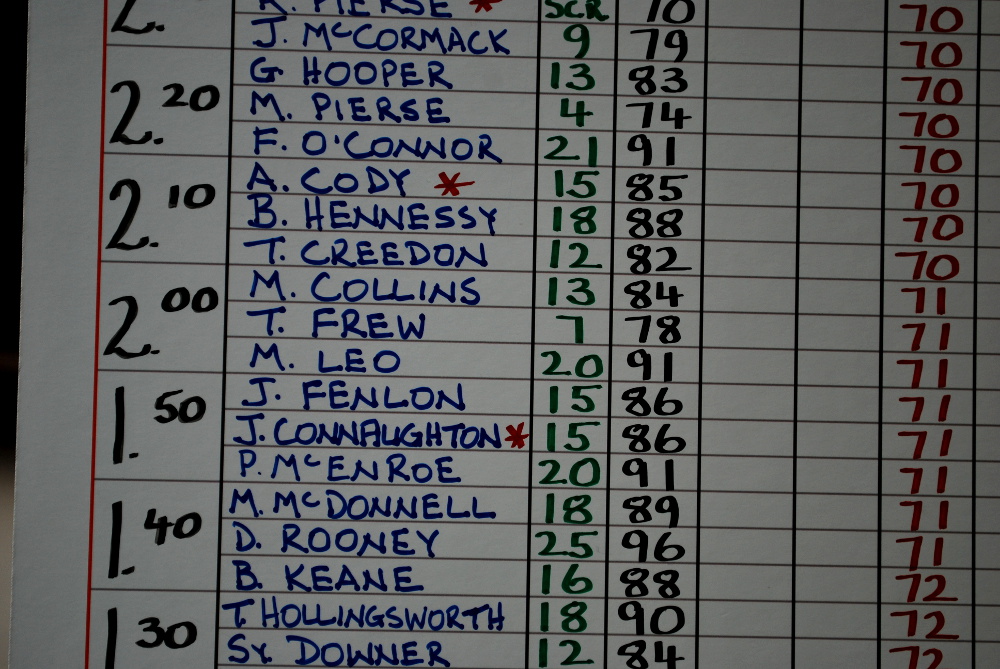 2. R. PIERSE * SCR 70 70
J. McCORMACK 9 79 70
2.20 G HOOPER 13 83 70
M. PIERSE 4 74 70
F. O'CONNOR 21 91 70
2.10 A. CODY * 15 85 70
B. HENNESSY 18 88 70
T. CREEDON 12 82 70
2.00 M. COLLINS 13 84 71
T. FREW 7 78 71
M. LEO 20 91 71
1.50 J. FENLON 15 86 71
J. CONNAUGHTON * 15 86 71
P. McENROE 20 91 71
1.40 M. McDONNELL 18 89 71
D. ROONEY 25 96 71
B. KEANE 16 88 72
1.30 T HOLLINGSWORTH 18 90 72
SY. DOWNER 12 84 72